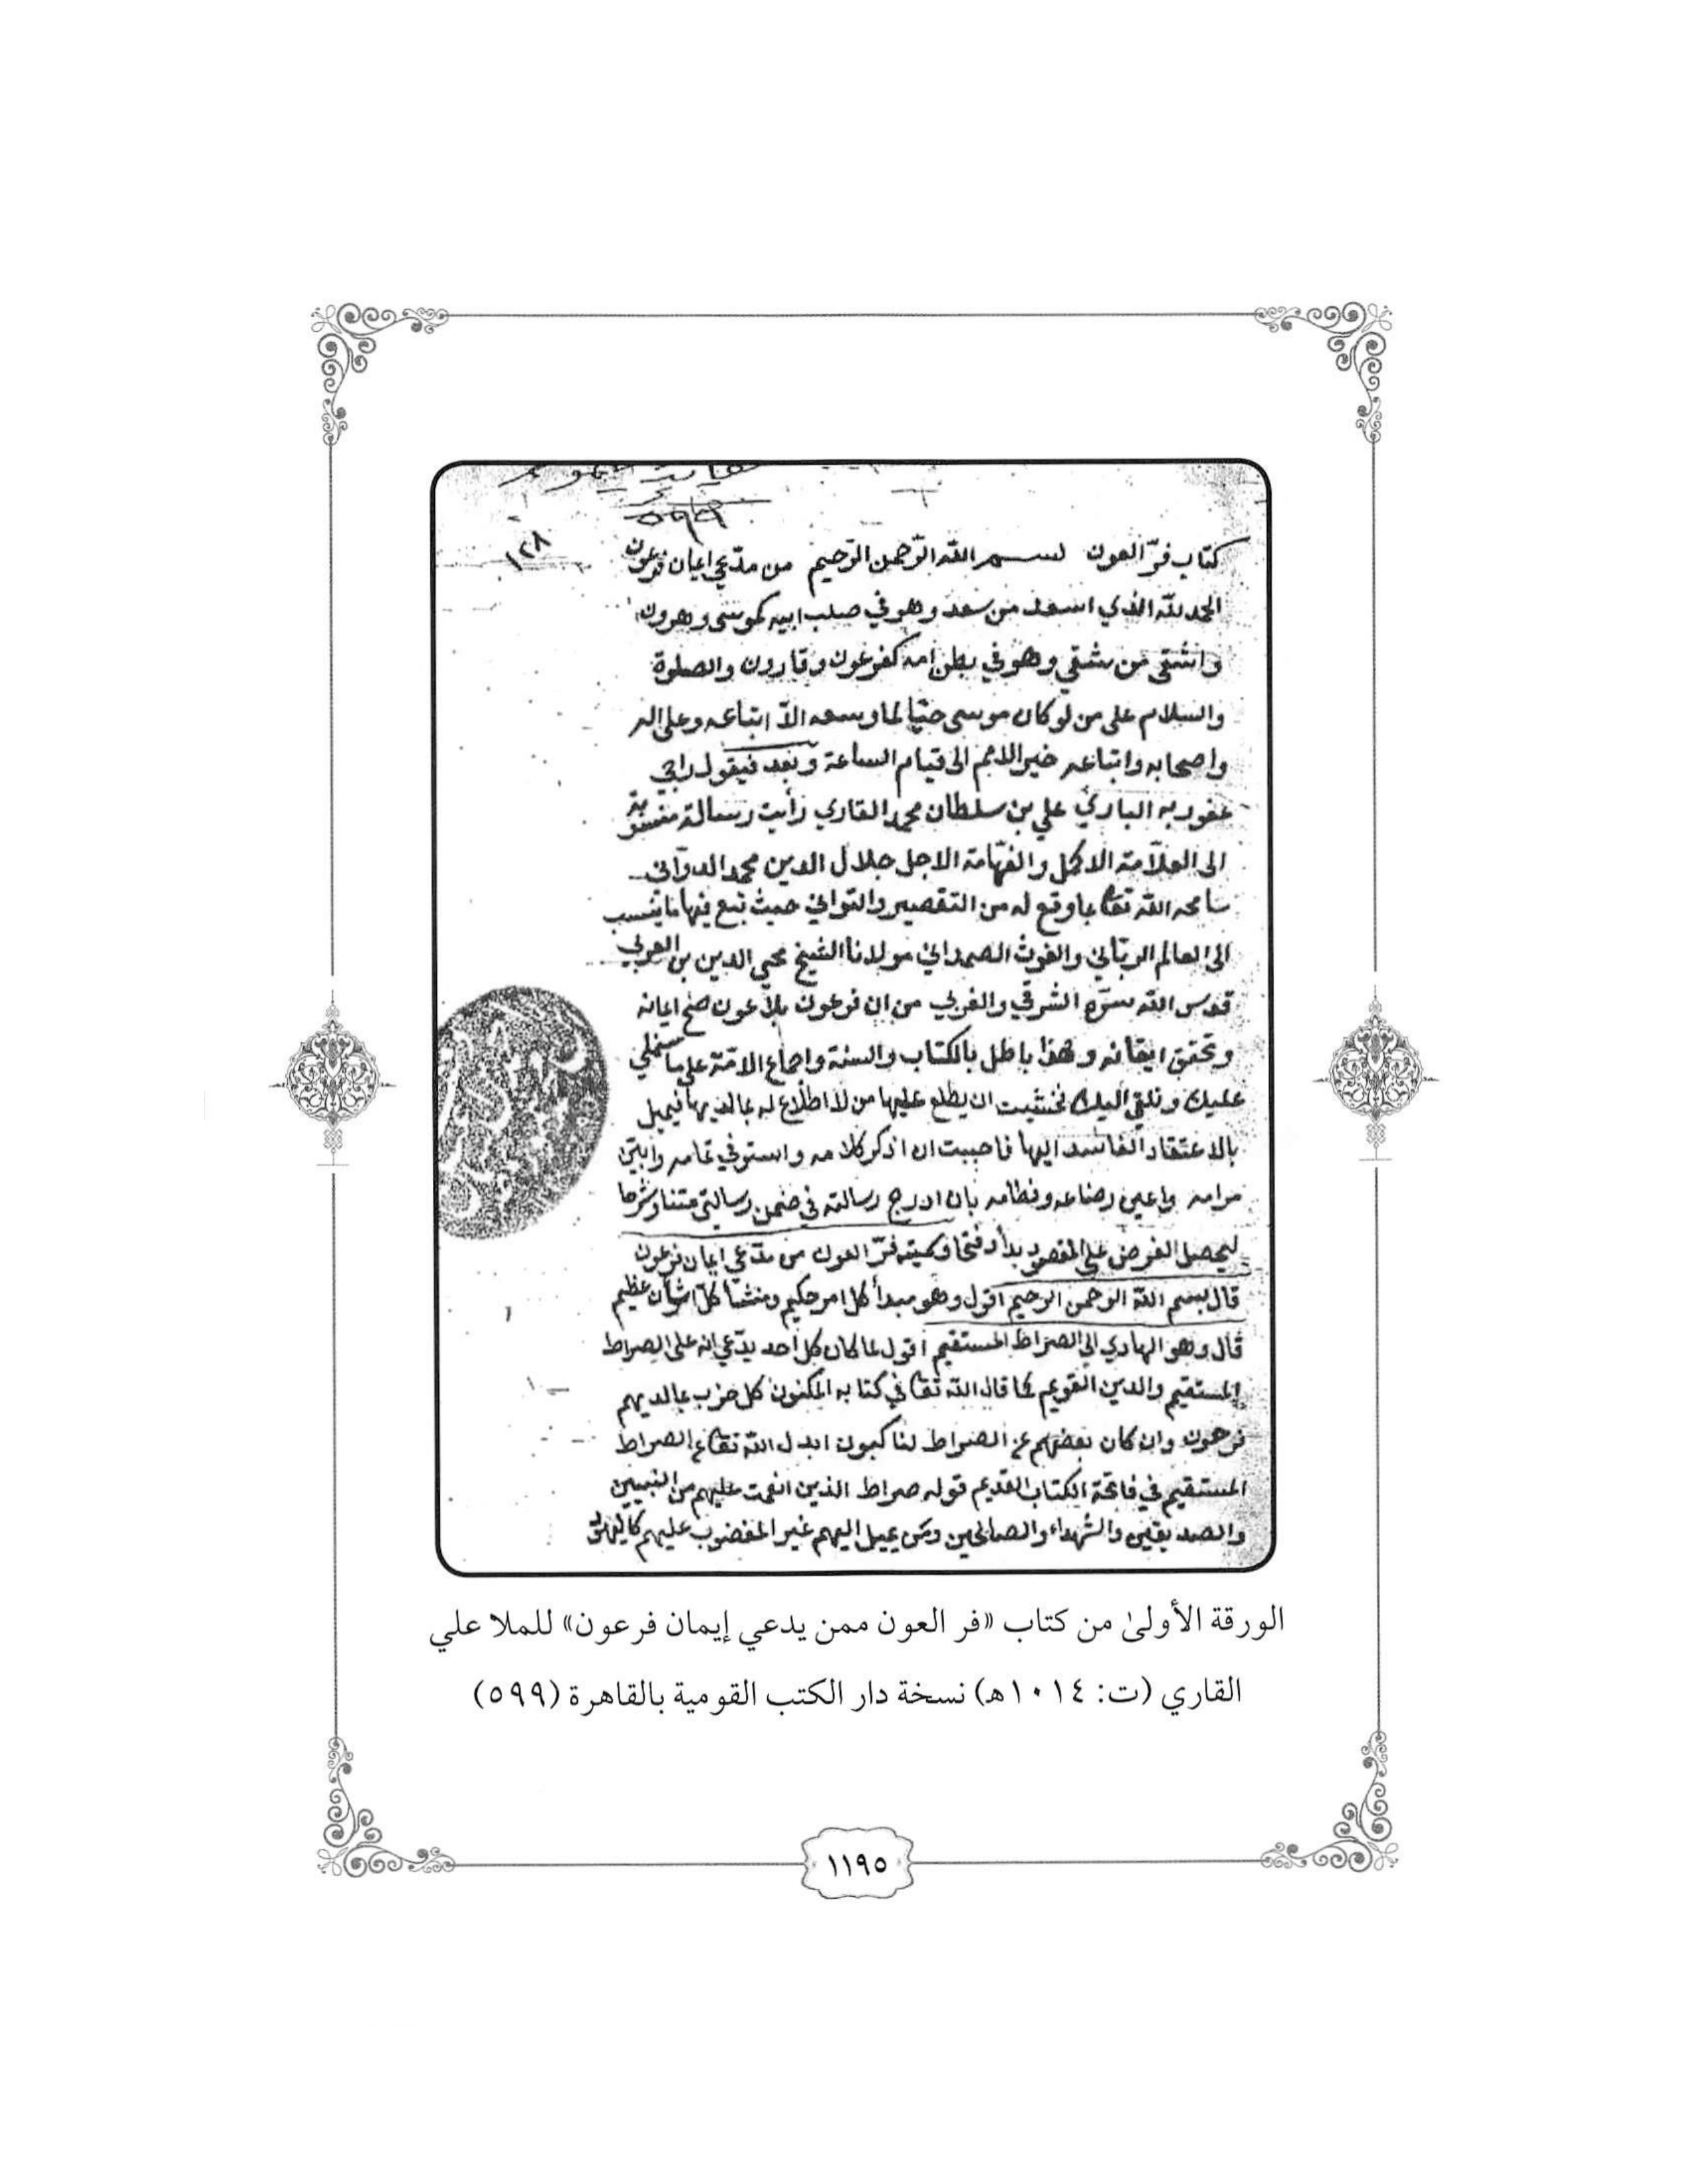 ٥٩٩
١٢٨
كتاب فرّ العون بسم الله الرّحمن الرّحيم من مدّعي ايمان فرعون
الحمد لله الذي اسعد من سعد وهو في صلب ابيه كموسى وهرون
واشقى من شقي وهو في بطن امه كفرعون وقارون والصلوة
والسلام على من لو كان موسى حيّا لما وسعه الاّ اتباعه وعلى اله
واصحابه واتباعه خير الامم الى قيام الساعة وبعد فيقول راجي
عفو ربه الباري علي بن سلطان محمد القاري رأيت رسالة منسوبة
الى العلاّمة الاكمل والفهّامة الاجل جلال الدين محمد الدوّاني
سامحه الله تعالى بما وقع له من التقصير والتواني حيث تبع فيها ما ينسب
الى العالم الربّاني والغوث الصمداني مولانا الشيخ محيي الدين بن العربي
قدس الله سرّه الشرقي والغربي من ان فرعون بلا عون صح ايمانه
وتحقق ايقانه وهذا باطل بالكتاب والسنة واجماع الامّة على ما سنملي
عليك ونلقي اليك فخشيت ان يطلع عليها من لا اطلاع له بما لديها فيميل
بالاعتقاد الفاسد اليها فاحببت ان اذكر كلامه واستوفي تمامه وابيّن
مرامه بان ادرج رسالته في ضمن رسالتي متنا وشرحا
ليحصل الغرض على المقصود فرّ العون من مدّعي ايمان فرعون
قال بسم الله الرحمن الرحيم اقول وهو مبدأ كل امر حكيم ومنشأ كلّ شأن عظيم
قال وهو الهادي الى الصراط المستقيم اقول لما كان كل احد يدّعي انه على الصراط
المستقيم والدين القويم كما قال الله تعالى في كتابه المكنون كل حزب بما لديهم
فرحون وان كان بعضهم عن الصراط لناكبون ابدل الله تعالى الصراط
المستقيم في فاتحة الكتاب القديم قوله صراط الذين انعمت عليهم من النبيين
والصديقين والشهداء والصالحين ومن يميل اليهم غير المغضوب عليهم كاليهود
الورقة الأولىٰ من كتاب «فر العون ممن يدعي إيمان فرعون» للملا علي
القاري (ت: ١٠١٤هـ) نسخة دار الكتب القومية بالقاهرة (٥٩٩)
١١٩٥